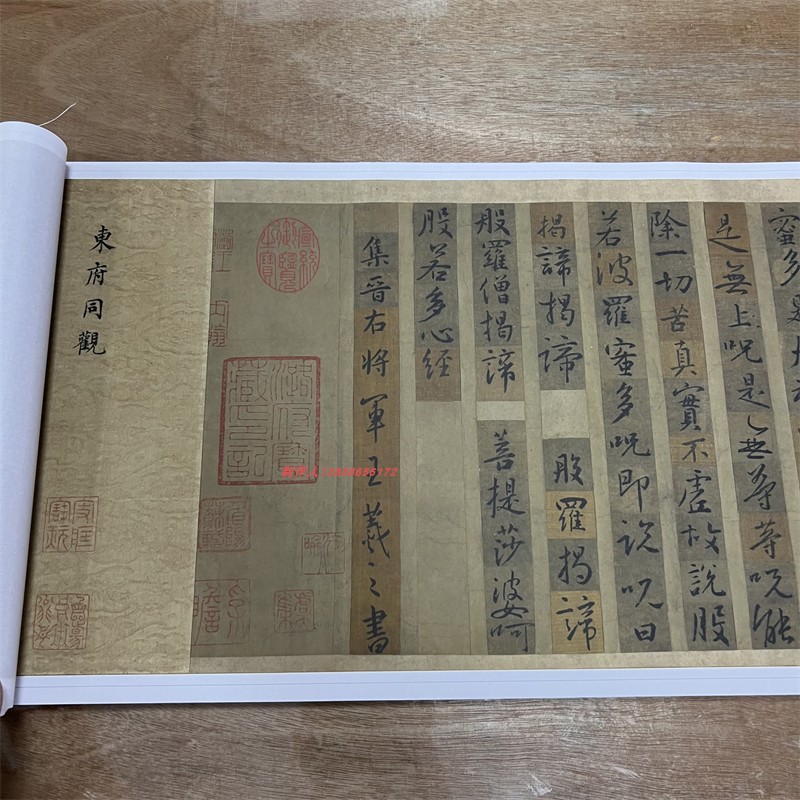 蜜多是
是無上呪是無等等呪能
除一切苦真實不虛故說般
若波羅蜜多呪即說呪曰
揭諦揭諦 般羅揭諦
般羅僧揭諦 菩提莎婆呵
般若多心經
集晉右將軍王羲之書
宣統御覽之寶
東府同觀